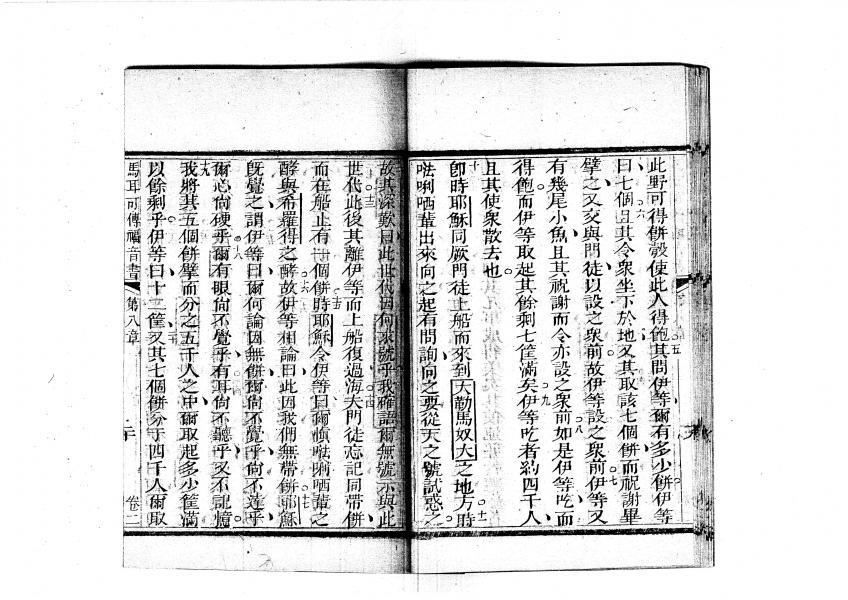 此野可得餅彀使此人得飽其問伊等爾有多少餅伊等
曰七個且其令衆坐下於地又其取該七個餅而祝謝畢
擘之又交與門徒以設之衆前故伊等設之衆前伊等又
有幾尾小魚且其祝謝而令亦設之衆前如是伊等吃而
得飽而伊等取起其餘剩七筐滿矣伊等吃者約四千人
且其使衆散去也
即時耶穌同厥門徒上船而來到大勒馬奴大之地方時
㕸唎哂輩出來向之起有問詢向之要從天之號試惑之
故其深歎曰此世代因何求號乎我確語爾無號示與此
世代此後其離伊等而上船復過海夫門徒忘記同帶餅
而在船止有一個餅時耶穌令伊等曰爾慎㕸唎哂輩之
酵與希羅得之酵故伊等相論曰此因我們無帶餅耶穌
既覺之謂伊等曰爾何論因無餅爾尚不覺乎尚不達乎
爾心尚硬乎爾有眼尚不覺乎有耳尚不聽乎又不記憶
我將其五個餅擘而分之五千人之中爾取起多少筐滿
以餘剩乎伊等曰十二筐又其七個餅分于四千人爾取
馬耳可傳福音書 第八章 卷二